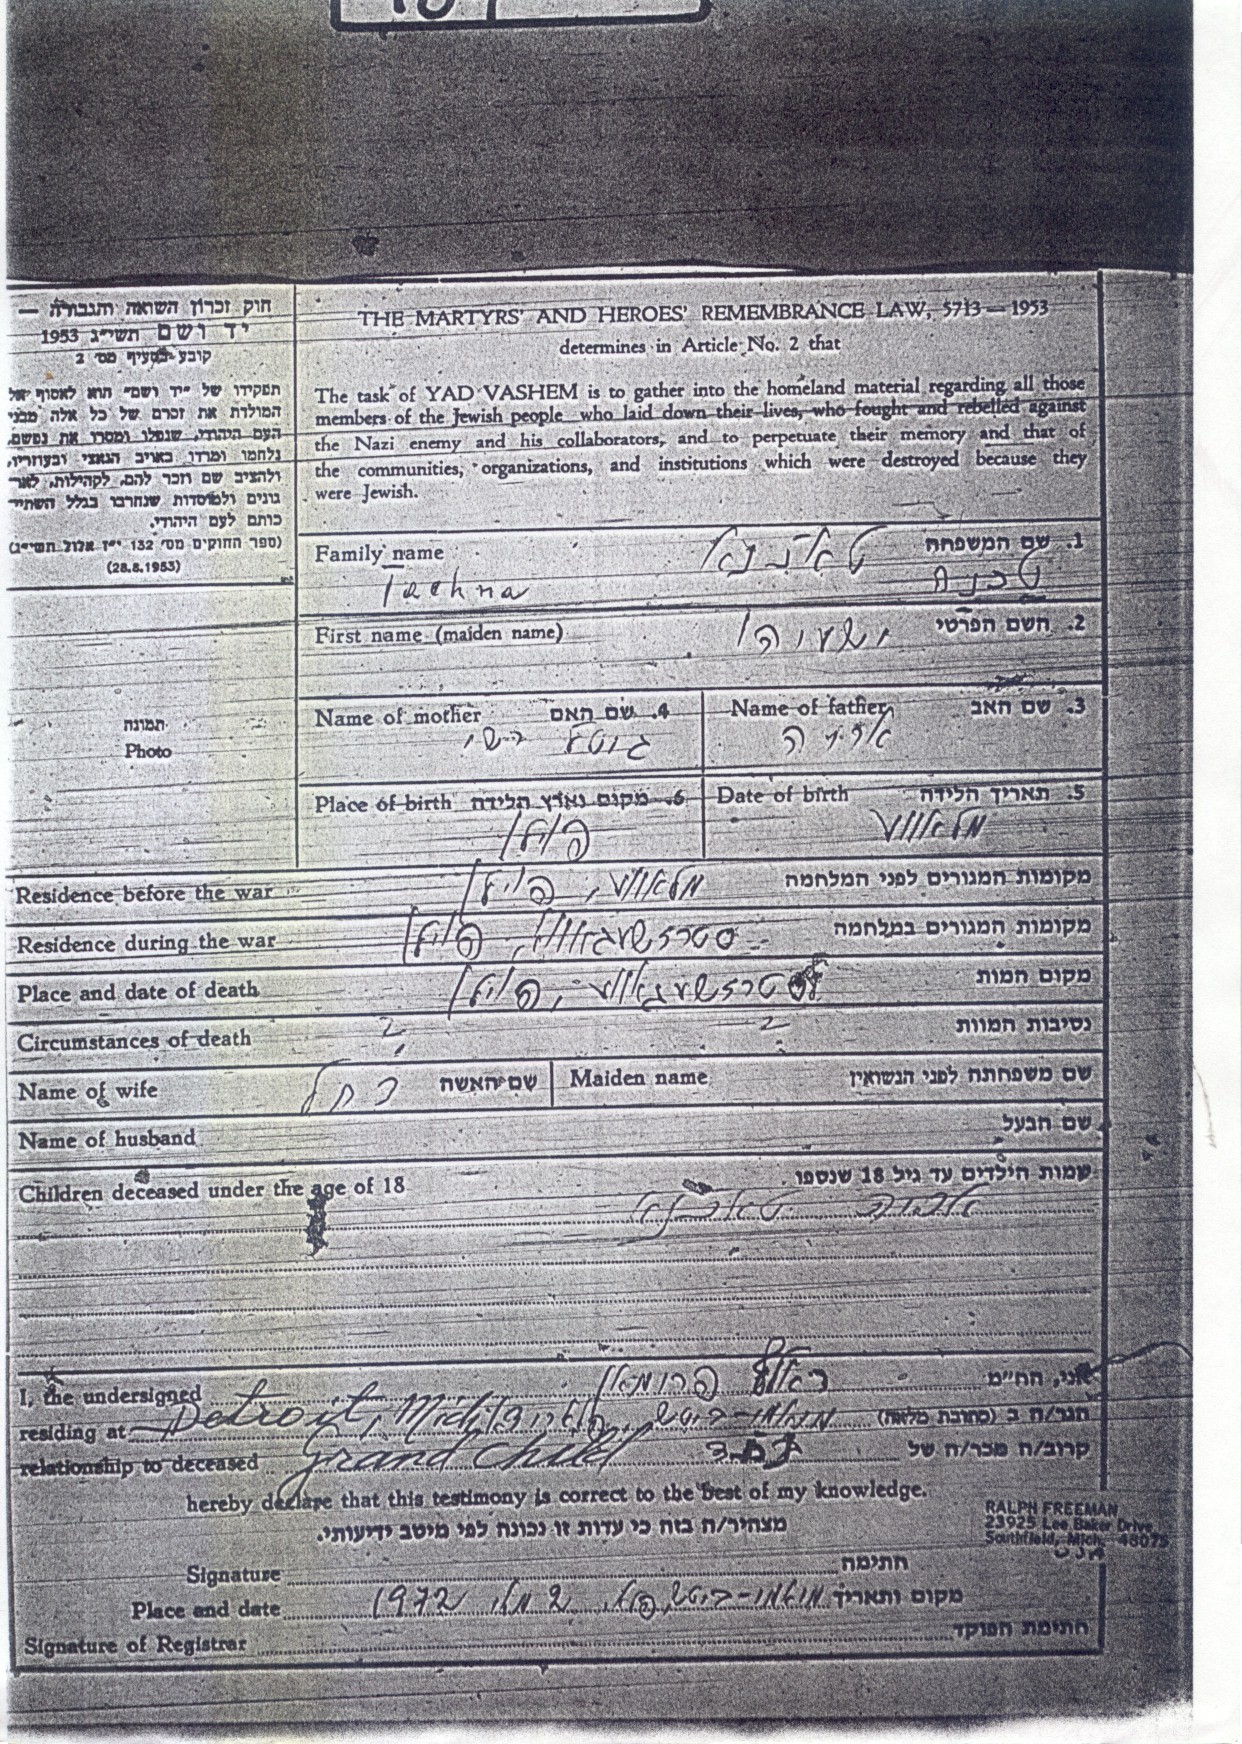 חוק זכרון השואה והגבורה —
יד ושם תשי״ג 1953
קובע בסעיף מס׳ 2
תפקידו של ״יד ושם״ הוא לאסוף אל
המולדת את זכרם של כל אלה מבני
העם היהודי, שנפלו ומסרו את נפשם,
נלחמו ומרדו באויב הנאצי ובעוזריו,
ולהציב שם וזכר להם, לקהילות, לאר
גונים ולמוסדות שנחרבו בגלל השתיי
כותם לעם היהודי.
(ספר החוקים מס׳ 132 י״ז אלול תשי״ג)
(28.8.1953)
THE MARTYRS' AND HEROES' REMEMBRANCE LAW, 5713—1953
determines in Article No. 2 that
The task of YAD VASHEM is to gather into the homeland material regarding all those
members of the Jewish people who laid down their lives, who fought and rebelled against
the Nazi enemy and his collaborators, and to perpetuate their memory and that of
the communities, organizations, and institutions which were destroyed because they
were Jewish.
תמונה
Photo
Family name 1. שם המשפחה
Tachna טכנה
First name (maiden name) 2. השם הפרטי
Name of mother 4. שם האם Name of father 3. שם האב
Place of birth 6. מקום וארץ הלידה Date of birth 5. תאריך הלידה
פוילן מלאווע
Residence before the war מקומות המגורים לפני המלחמה מלאווע, פוילן
Residence during the war מקומות המגורים במלחמה פוילן
Place and date of death מקום המות פוילן
Circumstances of death נסיבות המוות ? ?
Name of wife שם האשה רחל Maiden name שם משפחתה לפני הנשואין
Name of husband שם הבעל
Children deceased under the age of 18 שמות הילדים עד גיל 18 שנספו
I, the undersigned אני, החי״מ ראלף פרומאן
residing at Detroit, Mich הגר/ה ב (כתובת מלאה)
relationship to deceased grand child נכד קרוב/ה מכר/ה של
hereby declare that this testimony is correct to the best of my knowledge.
מצהיר/ה בזה כי עדות זו נכונה לפי מיטב ידיעותי.
RALPH FREEMAN
23925 Lee Baker Drive
Southfield, Mich. 48075
USA
Signature חתימה
Place and date מקום ותאריך מיאמי-ביטש, פלא. 2 מאי 1972
Signature of Registrar חתימת הפוקד